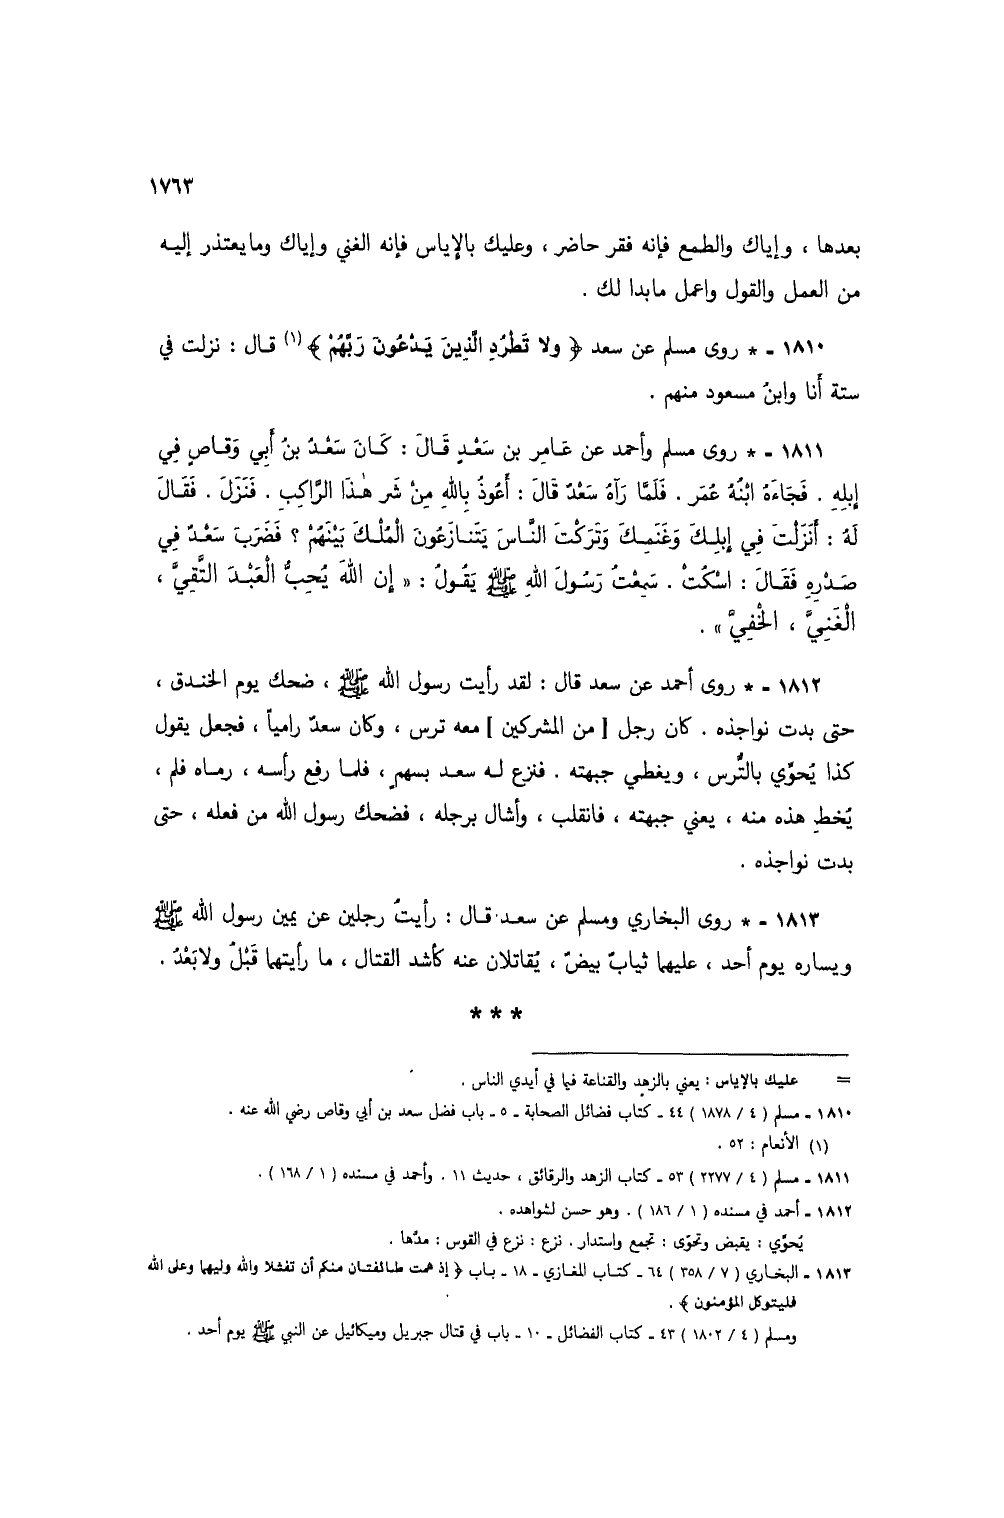 ١٧٦٣
بعدها ، وإياك والطمع فإنه فقر حاضر ، وعليك بالإياس فإنه الغني وإياك ومايعتذر إليه
من العمل والقول واعمل مابدا لك .
١٨١٠ - * روى مسلم عن سعد ﴿ ولا تَطْرُدِ الَّذِينَ يَدْعُونَ رَبَّهُمْ ﴾ (١) قال : نزلت في
ستة أَنا وابنُ مسعود منهم .
١٨١١ - * روى مسلم وأحمد عن عَامِر بن سَعْدٍ قَالَ : كَانَ سَعْدُ بنُ أَبِي وَقَاصٍ فِي
إِبِلِهِ . فَجَاءَهُ ابْنُهُ عُمَر . فَلَمَّا رَآهُ سَعْدٌ قَالَ : أَعُوذُ بِاللهِ مِنْ شَر هٰذَا الرَّاكِبِ . فَنَزَلَ . فَقَالَ
لَهُ : أَنَزَلْتَ فِي إبِلِكَ وَغَنَمِكَ وَتَرَكْتَ النَّاسَ يَتَنَازَعُونَ الْمُلْكَ بَيْنَهُمْ ؟ فَضَرَبَ سَعْدٌ فِي
صَدْرِهِ فَقَالَ : اسْكُتْ . سَمِعْتُ رَسُولَ اللهِ ﷺ يَقُولُ : « إِن اللهَ يُحِبُّ الْعَبْدَ التَّقِيَّ ،
الْغَنِيَّ ، الْخَفِيَّ » .
١٨١٢ - * روى أحمد عن سعد قال : لقد رأيت رسول الله ﷺ ، ضحك يوم الخندق ،
حتى بدت نواجذه . كان رجل [ من المشركين ] معه ترس ، وكان سعدٌ رامياً ، فجعل يقول
كذا يُحوِّي بالتُّرس ، ويغطي جبهته . فنزع له سعد بسهمٍ ، فلما رفع رأسه ، رماه فلم ،
يُخطِ هذه منه ، يعني جبهته ، فانقلب ، وأشال برجله ، فضحك رسول الله من فعله ، حتى
بدت نواجذه .
١٨١٣ - * روى البخاري ومسلم عن سعد قال : رأيتُ رجلين عن يمين رسول الله ﷺ
ويساره يوم أحد ، عليهما ثيابٌ بيضٌ ، يُقاتلان عنه كأشد القتال ، ما رأيتهما قَبْلُ ولابَعْدُ .
* * *
= عليك بالإياس : يعني بالزهد والقناعة فيما في أيدي الناس .
١٨١٠ - مسلم ( ٤ / ١٨٧٨ ) ٤٤ - كتاب فضائل الصحابة - ٥ - باب فضل سعد بن أبي وقاص رضي الله عنه .
(١) الأنعام : ٥٢ .
١٨١١ - مسلم ( ٤ / ٢٢٧٧ ) ٥٣ - كتاب الزهد والرقائق ، حديث ١١ . وأحمد في مسنده ( ١ / ١٦٨ ) .
١٨١٢ - أحمد في مسنده ( ١ / ١٨٦ ) . وهو حسن لشواهده .
يُحوِّي : يقبض وتحوّى : تجمع واستدار . نزع : نزع في القوس : مدّها .
١٨١٣ - البخاري ( ٧ / ٣٥٨ ) ٦٤ - كتاب المغازي - ١٨ - باب ﴿ إذ همت طائفتان منكم أن تفشلا والله وليهما وعلى الله
فليتوكل المؤمنون ﴾ .
ومسلم ( ٤ / ١٨٠٢ ) ٤٣ - كتاب الفضائل - ١٠ - باب في قتال جبريل وميكائيل عن النبي ﷺ يوم أحد .